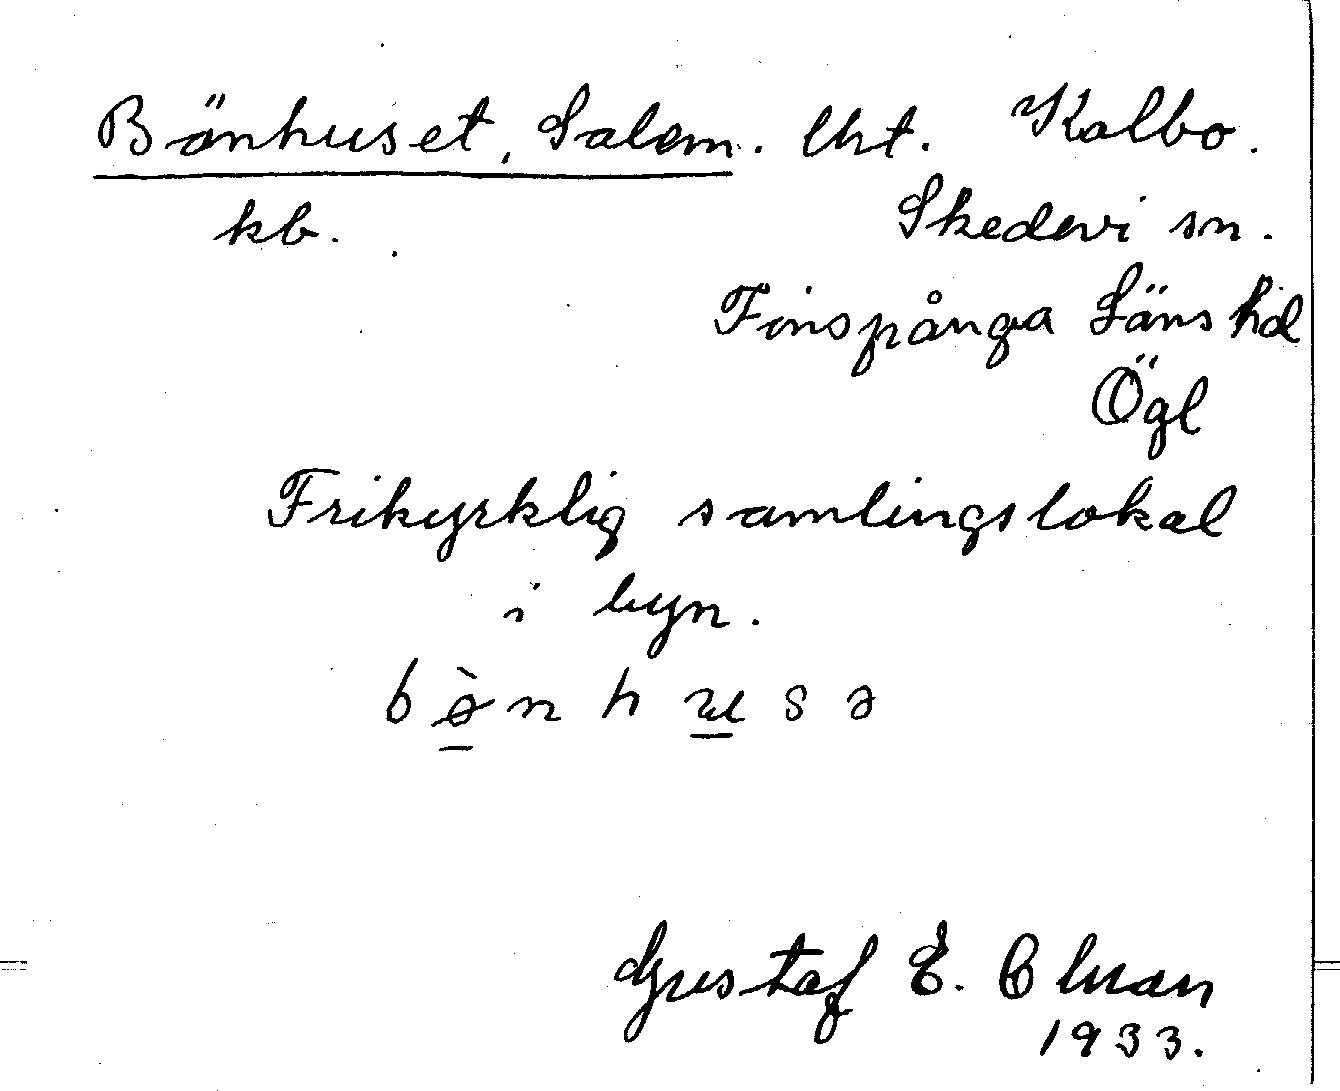 Bönhuset, Salem. lht. Kolbo.
kb. Skedevi sn.
Finspånga Läns hd
Ögl
Frikyrklig samlingslokal
i byn.
bø̀nhusə
Gustaf E.
1933.